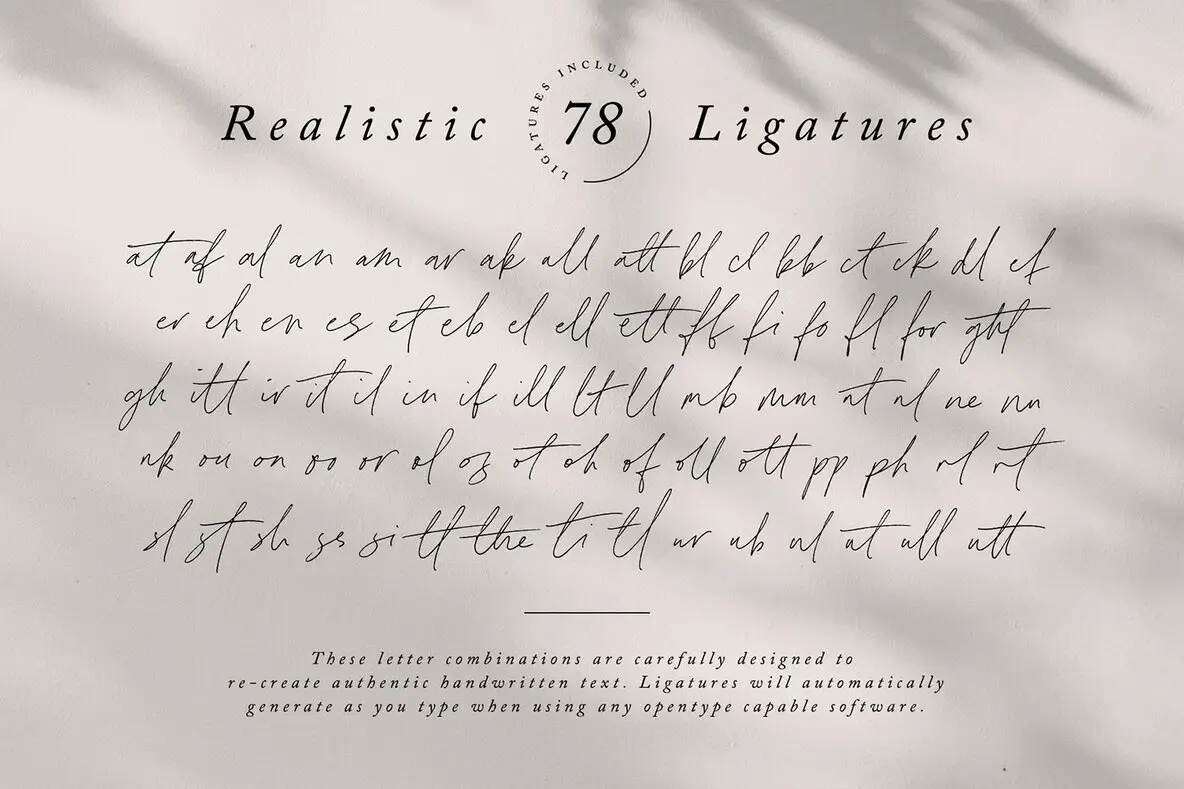 LIGATURES INCLUDED
Realistic 78 Ligatures
at af al an am ar ak all att bl cl bb ct ck dl ef
er eh en es et eb el ell ett ff fi fo fl for ght
gh itt ir it il in if ill lt ll mb mm nt nl ne nn
nk ou on oo or ol os ot oh of oll ott pp ph rl rt
sl st sh ss si tt the ti tl ur ub ul ut ull utt
These letter combinations are carefully designed to
re-create authentic handwritten text. Ligatures will automatically
generate as you type when using any opentype capable software.